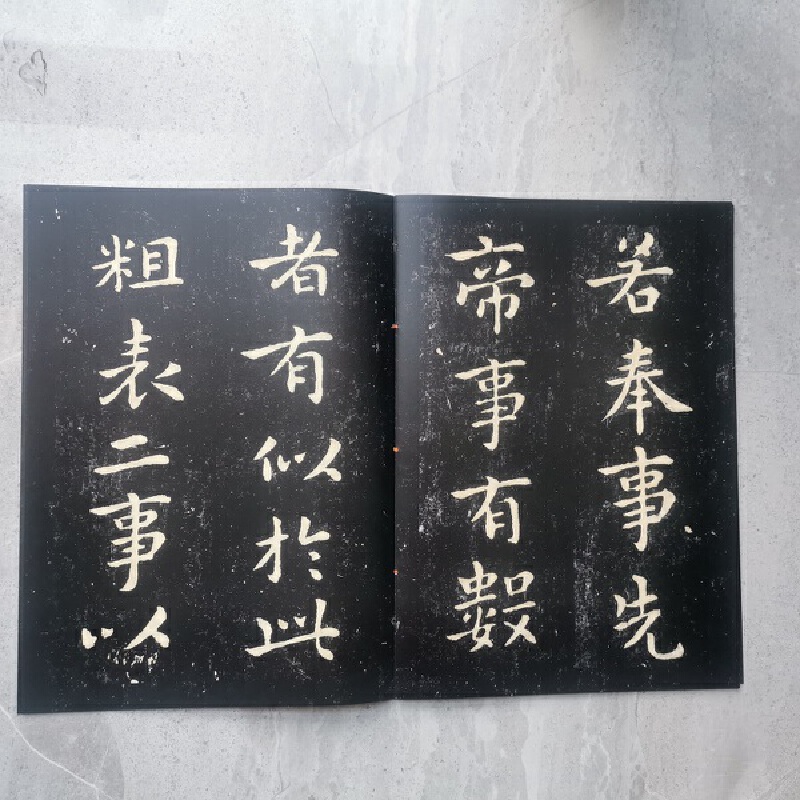 若奉事先
帝事有數
者有似於此
粗表二事以